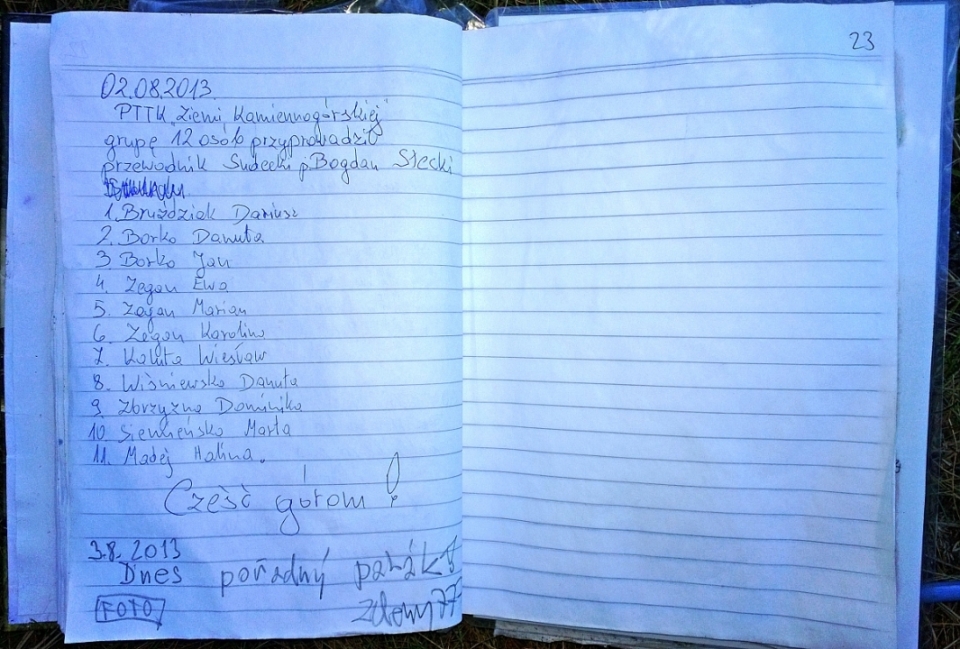 23
02.08.2013
PTTK „Ziemi Kamiennogórskiej”
grupę 12 osób przyprowadził
przewodnik Sudecki p. Bogdan Stecki
1. Bruździak Dariusz
2. Borko Danuta
3 Borko Jan
4. Zegan Ewa
5. Zegan Marian
6. Zegan Karolina
7. Wiesław
8. Wiśniewska Danuta
9. Zbrzyzna Dominika
10 Marta
11. Madej Halina.
Cześć górom!
3.8. 2013
Dnes pořádný pařák
FOTO